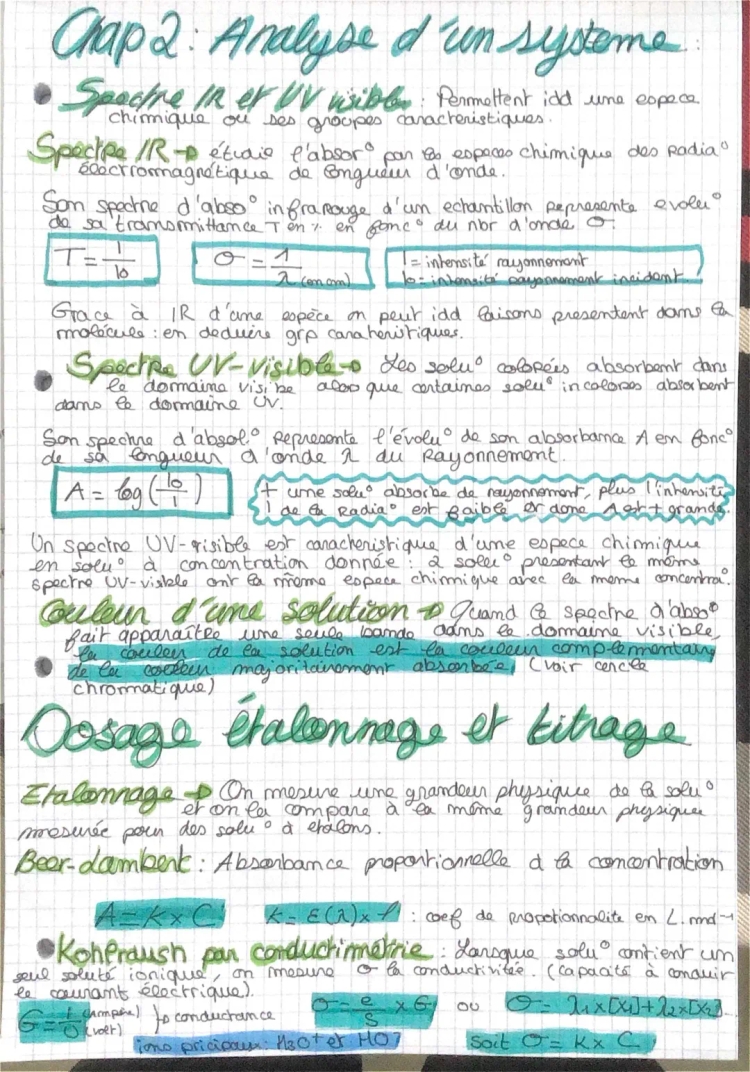 Chap 2 : Analyse d'un systeme
Spectre IR et UV visible : Permettent idd une espece
chimique ou ses groupes caracteristiques.
Spectre IR → étudie l'absor° par les especes chimique des Radia°
électromagnétique de longueur d'onde.
Son spectre d'abso° infrarouge d'un echantillon represente evolu°
de sa transmittance T en % en fonc° du nbr d'onde σ.
T = I/I0 σ = 1/λ (en cm) I = intensité rayonnement
I0 = intensité rayonnement incident
Grace à IR d'une espèce on peut idd liaisons presentent dans la
molécule : en deduire grp caratheristiques.
Spectre UV-visible → Les solu° colorées absorbent dans
le domaine visibe alors que certaines solu° incolores absorbent
dans le domaine UV.
Son spectre d'absol.° Represente l'évolu° de son absorbance A en fonc°
de sa longueur d'onde λ du Rayonnement.
A = log (I0/I) + une solu° absorbe de rayonnement, plus l'intensité
I de la Radia° est faible et donc A est + grande.
Un spectre UV-visible est caracteristique d'une espece chimique
en solu° à concentration donnée : 2 solu° presentant le même
spectre UV-visible ont la même espece chimique avec la meme concentra°.
Couleur d'une solution → Quand le spectre d'abso°
fait apparaître une seule bande dans le domaine visible,
la couleur de la solution est la couleur complementaire
de la couleur majoritairement absorbée (voir cercle
chromatique)
Dosage étalonnage et titrage
Etalonnage → On mesure une grandeur physique de la solu°
et on la compare à la même grandeur physique
mesurée pour des solu° à etalons.
Beer-Lambert : Absorbance proportionnelle à la concentration
A = K x C K = ε(λ) x l : coef de propotionnalite en L.mol⁻¹
Kohlraush par conductimétrie : Lorsque solu° contient un
seul soluté ionique, on mesure σ la conductivitée. (capacité à conduir
le courant électrique).
G = I/U (ampère) (volt) } conductance σ = e/S x G ou σ = λ1x[X1]+λ2x[X2]...
ions pricipaux : H3O+ et HO- soit σ = K x C